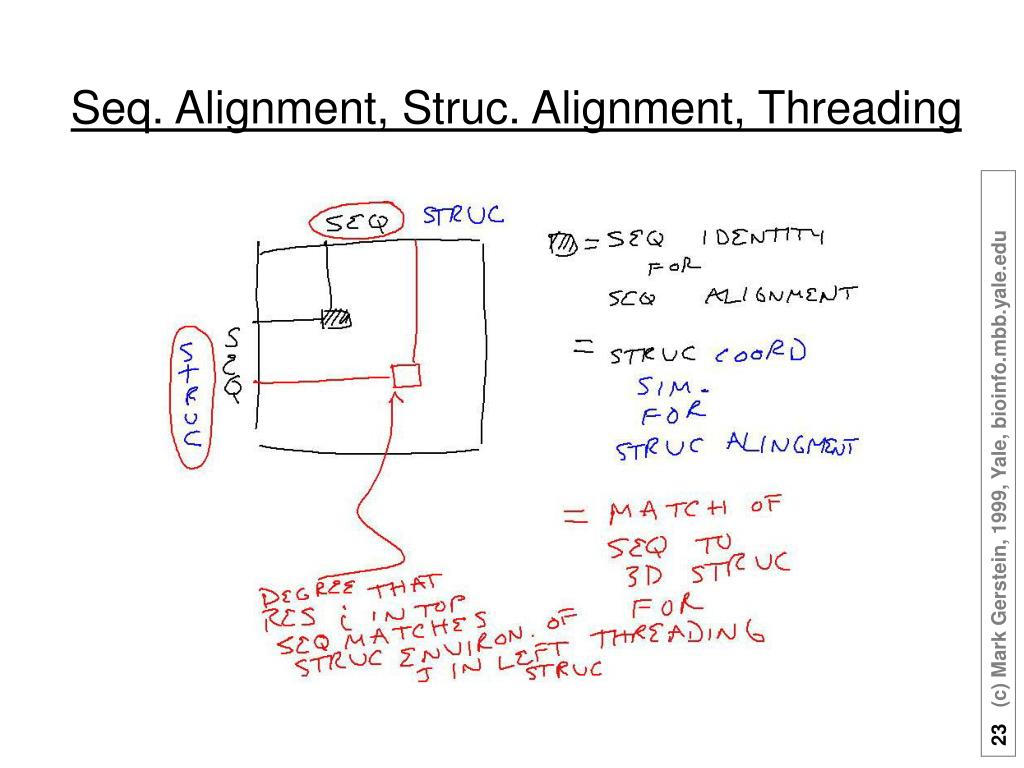 Seq. Alignment, Struc. Alignment, Threading
SEQ STRUC
SEQ
STRUC
= SEQ IDENTITY
FOR
SEQ ALIGNMENT
= STRUC COORD
SIM.
FOR
STRUC ALINGMENT
= MATCH OF
SEQ TO
3D STRUC
FOR
THREADING
DEGREE THAT
RES i IN TOP
SEQ MATCHES
STRUC ENVIRON. OF
J IN LEFT
STRUC
23 (c) Mark Gerstein, 1999, Yale, bioinfo.mbb.yale.edu